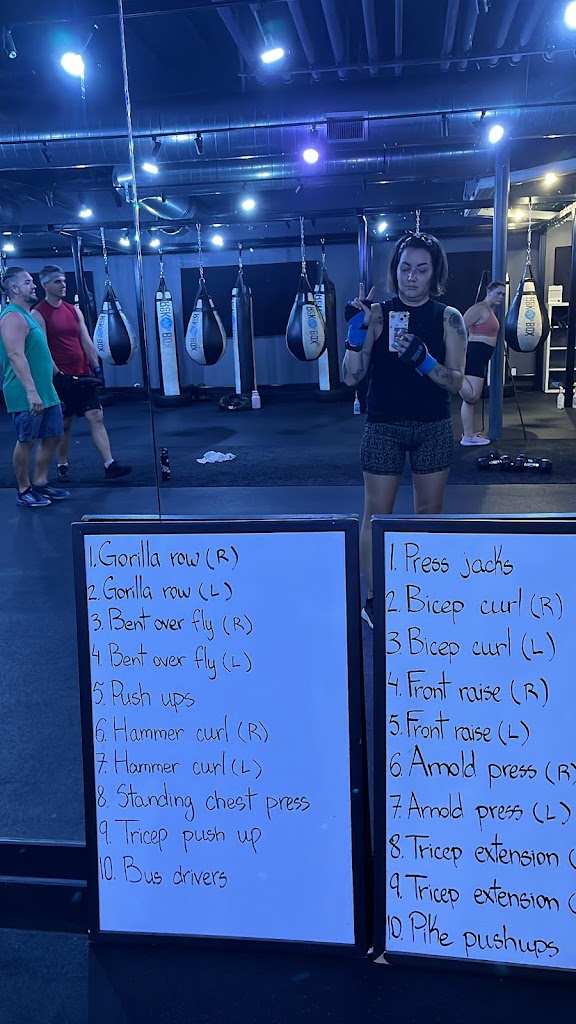 1. Gorilla row (R)
2. Gorilla row (L)
3. Bent over fly (R)
4. Bent over fly (L)
5. Push ups
6. Hammer curl (R)
7. Hammer curl (L)
8. Standing chest press
9. Tricep push up
10. Bus drivers
1. Press jacks
2. Bicep curl (R)
3. Bicep curl (L)
4. Front raise (R)
5. Front raise (L)
6. Arnold press (R)
7. Arnold press (L)
8. Tricep extension (
9. Tricep extension (
10. Pike pushups